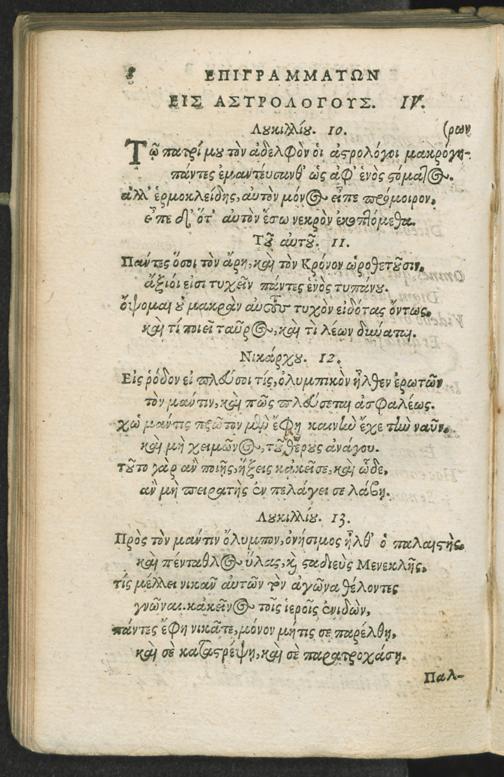 8 ΕΠΙΓΡΑΜΜΑΤΩΝ
ΕΙΣ ΑΣΤΡΟΛΟΓΟΥΣ. IV.
Λουκιλλίου. 10. (ρων
Τῷ πατρί μου τὸν ἀδελφὸν οἱ ἀστρολόγοι μακρόγη-
πάντες ἐμαντεύσανθ' ὡς ἀφ' ἑνὸς στόματος.
ἀλλ' ἑρμοκλείδης, αὐτὸν μόνος εἶπε πρόμοιρον.
εἶπε δ' ὅτ' αὐτὸν ἔσω νεκρὸν ἐκοπτόμεθα.
Τοῦ αὐτοῦ. 11.
Πάντες ὅσοι τὸν ἄρη, καὶ τὸν Κρόνον ὡροθετοῦσιν,
ἄξιοί εἰσι τυχεῖν πάντες ἑνὸς τυπάνου.
ὄψομαι οὐ μακρὰν αὐτοὺς τυχὸν εἰδότας ὄντως,
καὶ τί ποιεῖ ταῦρος, καὶ τί λέων δύναται.
Νικάρχου. 12.
Εἰς ῥόδον εἰ πλεύσει τίς, ὀλυμπικὸν ἦλθεν ἐρωτῶν
τὸν μάντιν, καὶ πῶς πλεύσεται ἀσφαλέως.
χὠ μάντις πρῶτον μὲν ἔφη καινὴν ἔχε τὴν ναῦν.
καὶ μὴ χειμῶνος, τοῦ θέρους ἀνάγου.
τοῦτο γὰρ ἂν ποιῇς, ἥξεις κἀκεῖσε, καὶ ὧδε,
ἂν μὴ πειρατὴς ἐν πελάγει σε λάβῃ.
Λουκιλλίου. 13.
Πρὸς τὸν μάντιν ὄλυμπον, ὀνήσιμος ἦλθ' ὁ παλαιστής,
καὶ πένταθλος ὕλας, καὶ σταδιεὺς Μενεκλῆς,
τίς μέλλει νικᾶν αὐτῶν τὸν ἀγῶνα θέλοντες
γνῶναι. κἀκεῖνος τοῖς ἱεροῖς ἐνιδὼν,
πάντες ἔφη νικᾶτε, μόνον μήτις σε παρέλθῃ,
καὶ σὲ καταστρέψῃ, καὶ σὲ παρατροχάσῃ.
Παλ-